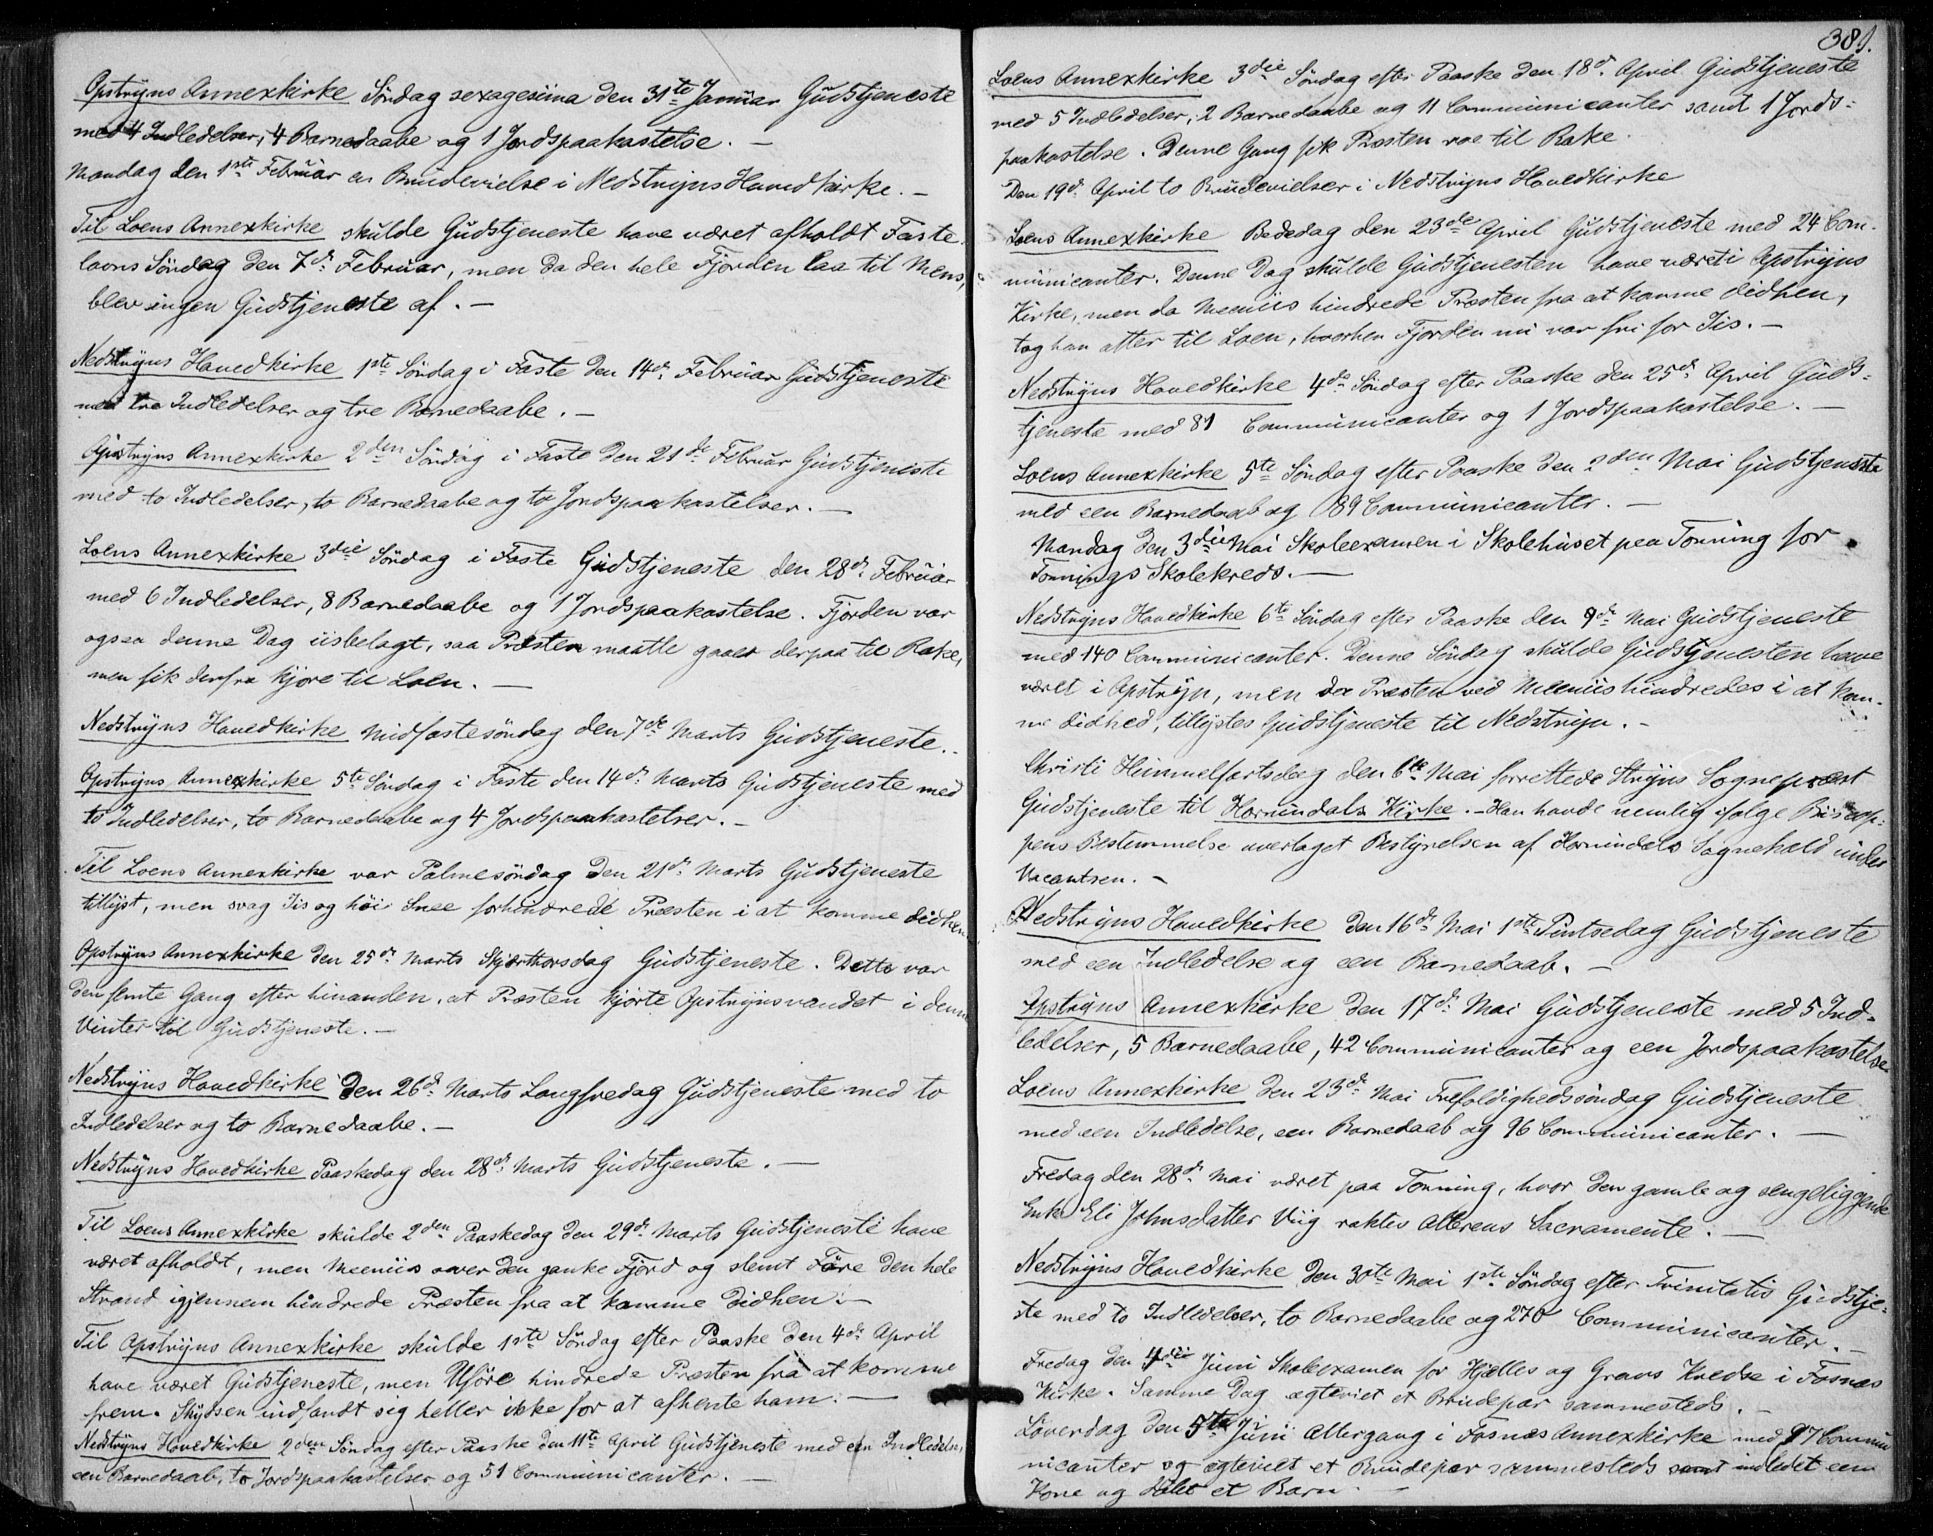 Opstryns Annexkirke Søndag sexagesima den 31te Januar Gudstjeneste
med 4 Indledelser, 4 Barnedaabe og 1 Jordspaakastelse. —
Mandag den 1ste Februar en Brudevielse i Nedstryns Hovedkirke. —
Til Loens Annexkirke skulde Gudstjeneste have været afholdt Faste-
lavns Søndag den 7de Februar, men da den hele Fjorden laa til Mens,
blev ingen Gudstjeneste af. —
Nedstryns Hovedkirke 1ste Søndag i Faste den 14de Februar Gudstjeneste
med tre Indledelser og tre Barnedaabe. —
Opstryns Annexkirke 2den Søndag i Faste den 21de Februar Gudstjeneste
med to Indledelser, to Barnedaabe og to Jordspaakastelser. —
Loens Annexkirke 3die Søndag i Faste Gudstjeneste den 28de Februar
med 6 Indledelser, 8 Barnedaabe og 1 Jordspaakastelse. Fjorden var
ogsaa denne Dag iisbelagt, saa Præsten maatte gaae derpaa til Rake,
men fik derfra kjøre til Loen. —
Nedstryns Hovedkirke Midfastesøndag den 7de Marts Gudstjeneste. -
Opstryns Annexkirke 5te Søndag i Faste den 14de Marts Gudstjeneste med
to Indledelser, to Barnedaabe og 4 Jordspaakastelser. —
Til Loens Annexkirke var Palmesøndag den 21de Marts Gudstjeneste
tillyst, men svag Iis og høi Snee forhindrede Præsten i at komme didhen
Opstryns Annexkirke den 25de Marts Skjærthorsdag Gudstjeneste. Dette var
den femte Gang efter hinanden, at Præsten kjørte Opstrynsvandet i denne
Vinter til Gudstjeneste. —
Nedstryns Hovedkirke den 26de Marts Langfredag Gudstjeneste med to
Indledelser og to Barnedaabe. —
Nedstryns Hovedkirke Paaskedag den 28de Marts Gudstjeneste. —
Til Loens Annexkirke skulde 2den Paaskedag den 29de Marts Gudstjeneste have
været afholdt, men Meeniis over den ganske Fjord og slemt Føre den hele
Strand igjennem hindrede Præsten fra at komme didhen. —
Til Opstryns Annexkirke skulde 1ste Søndag efter Paaske den 4de April
have været Gudstjeneste, men Uføre hindrede Præsten fra at komme
frem. Skydsen indfandt sig heller ikke for at afhente ham. —
Nedstryns Hovedkirke 2den Søndag efter Paaske den 11te April Gudstjeneste med een Indledelse,
een Barnedaab, to Jordspaakastelser og 51 Communicanter. —
381.
Loens Annexkirke 3die Søndag efter Paaske den 18de April Gudstjeneste
med 5 Indledelser, 2 Barnedaabe og 11 Communicanter samt 1 Jords-
paakastelse. Denne Gang fik Præsten roe til Rake.
Den 19de April to Brudevielser i Nedstryns Hovedkirke
Loens Annexkirke Bededag den 23de April Gudstjeneste med 24 Com-
municanter. Denne Dag skulde Gudstjenesten have været i Opstryns
Kirke, men da Meeniis hindrede Præsten fra at komme didhen,
tog han atter til Loen, hvorhen Fjorden nu var fri for Iis. —
Nedstryns Hovedkirke 4de Søndag efter Paaske den 25de April Guds-
tjeneste med 81 Communicanter og 1 Jordspaakastelse. —
Loens Annexkirke 5te Søndag efter Paaske den 2den Mai Gudstjeneste
med een Barnedaab og 89 Communicanter. —
Mandag den 3die Mai Skoleexamen i Skolehuset paa Tonning for
Tonnings Skolekreds. —
Nedstryns Hovedkirke 6te Søndag efter Paaske den 9de Mai Gudstjeneste
med 140 Communicanter. Denne Søndag skulde Gudstjenesten have
været i Opstryn, men da Præsten ved Meeniis hindredes i at kom-
me didhed, tillystes Gudstjeneste til Nedstryn. —
Christi Himmelfartsdag den 6te Mai forrettede Stryns Sognepræst
Gudstjeneste til Hornindals Kirke. — Han havde nemlig ifølge Biskop-
pens Bestemmelse overtaget Bestyrelsen af Hornindals Sognekald under
Vacantsen. —
Nedstryns Hovedkirke den 16de Mai 1ste Pintsedag Gudstjeneste
med een Indledelse og een Barnedaab. —
Opstryns Annexkirke den 17de Mai Gudstjeneste med 5 Ind-
ledelser, 5 Barnedaabe, 42 Communicanter og een Jordspaakastelse
Loens Annexkirke den 23de Mai Trefoldighedssøndag Gudstjeneste
med een Indledelse, een Barnedaab og 96 Communicanter. —
Fredag den 28de Mai været paa Tonning, hvor den gamle og sengeliggende
Enke Eli Johnsdatter Viig raktes Alterens Sacramente. —
Nedstryns Hovedkirke den 30te Mai 1ste Søndag efter Trinitatis Gudstje-
ste med to Indledelser, to Barnedaabe og 270 Communicanter. —
Fredag den Juni Skoleexamen for Hjelles og Gravs Kredse i Fosnæs
Kirke. Samme Dag ægteviet et Brudepar sammesteds. —
Løverdag den 5te Juni Altergang i Fosnæs Annexkirke med 97 Commu
nicanter og ægteviet et Brudepar sammesteds samt indledet een
Kone og døbt et Barn. —